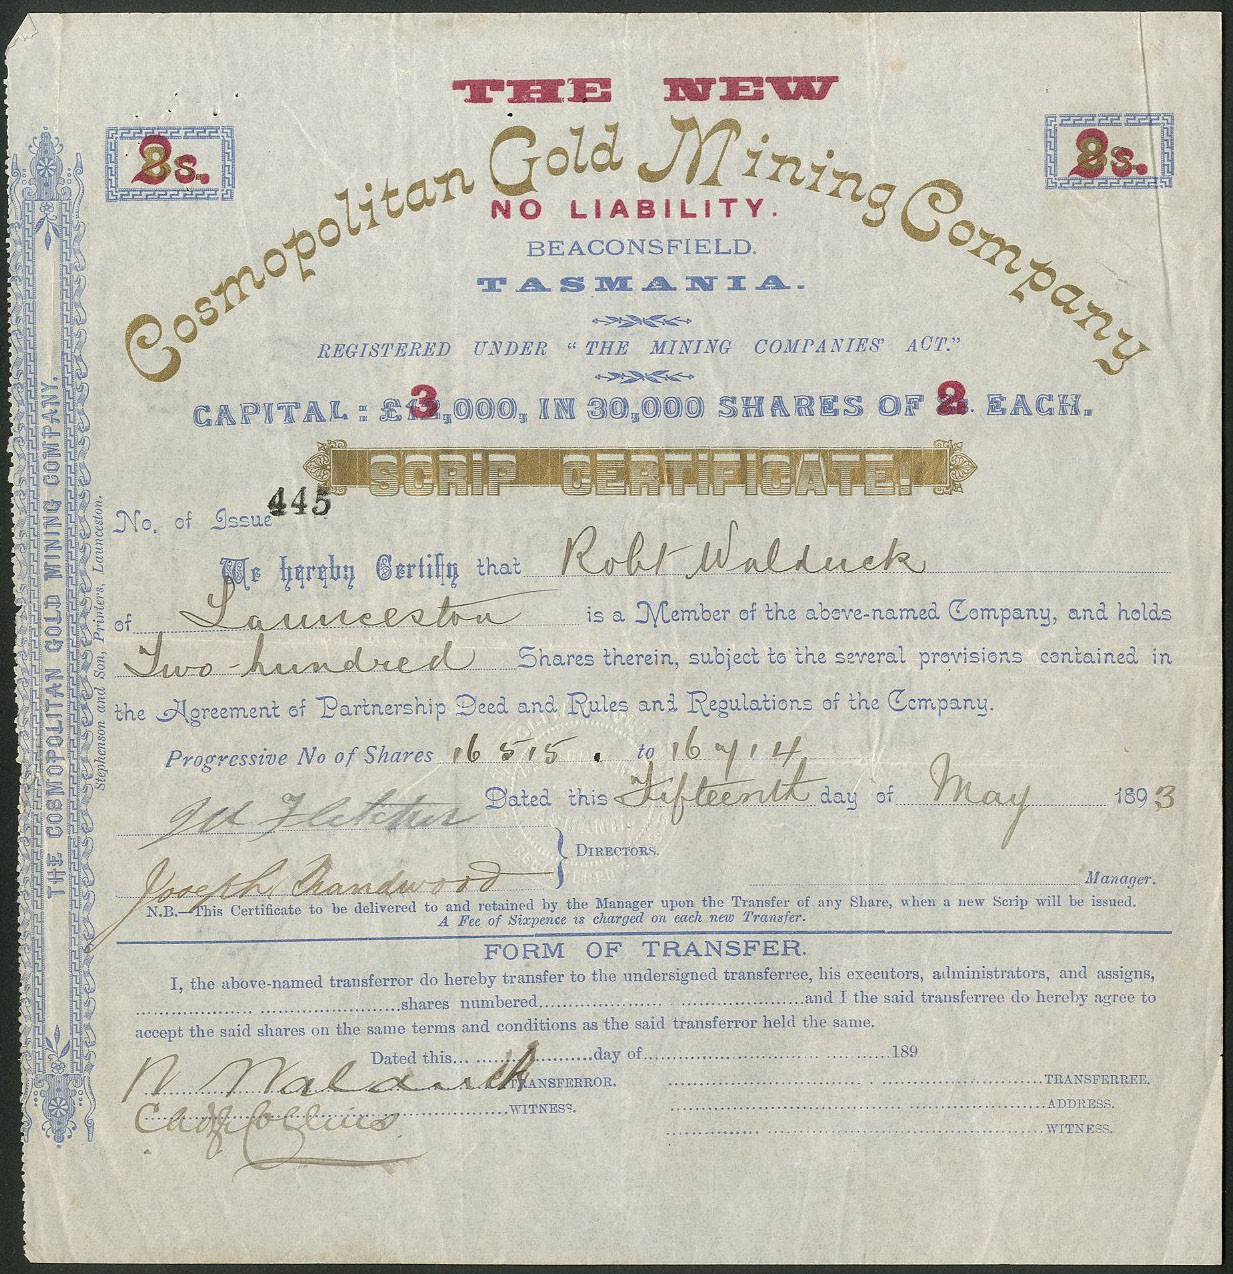 THE NEW
2s.
2s.
Cosmopolitan Gold Mining Company
NO LIABILITY.
BEACONSFIELD.
TASMANIA.
REGISTERED UNDER "THE MINING COMPANIES' ACT."
CAPITAL: £3,000, IN 30,000 SHARES OF 2 EACH.
SCRIP CERTIFICATE!
No. of Issue 445
We hereby Certify that Robt Walduck
of Launceston is a Member of the above-named Company, and holds
Two-hundred Shares therein, subject to the several provisions contained in
the Agreement of Partnership Deed and Rules and Regulations of the Company.
Progressive No of Shares 16515. to 16714
Dated this Fifteenth day of May 1893
Fletcher
DIRECTORS.
Joseph
Manager.
N.B.—This Certificate to be delivered to and retained by the Manager upon the Transfer of any Share, when a new Scrip will be issued.
A Fee of Sixpence is charged on each new Transfer.
FORM OF TRANSFER.
I, the above-named transferror do hereby transfer to the undersigned transferree, his executors, administrators, and assigns,
shares numbered and I the said transferree do hereby agree to
accept the said shares on the same terms and conditions as the said transferror held the same.
Dated this day of 189
R Walduck TRANSFERROR. TRANSFERREE.
Collins WITNESS. ADDRESS.
WITNESS.
THE COSMOPOLITAN GOLD MINING COMPANY.
Stephenson and Son, Printers, Launceston.